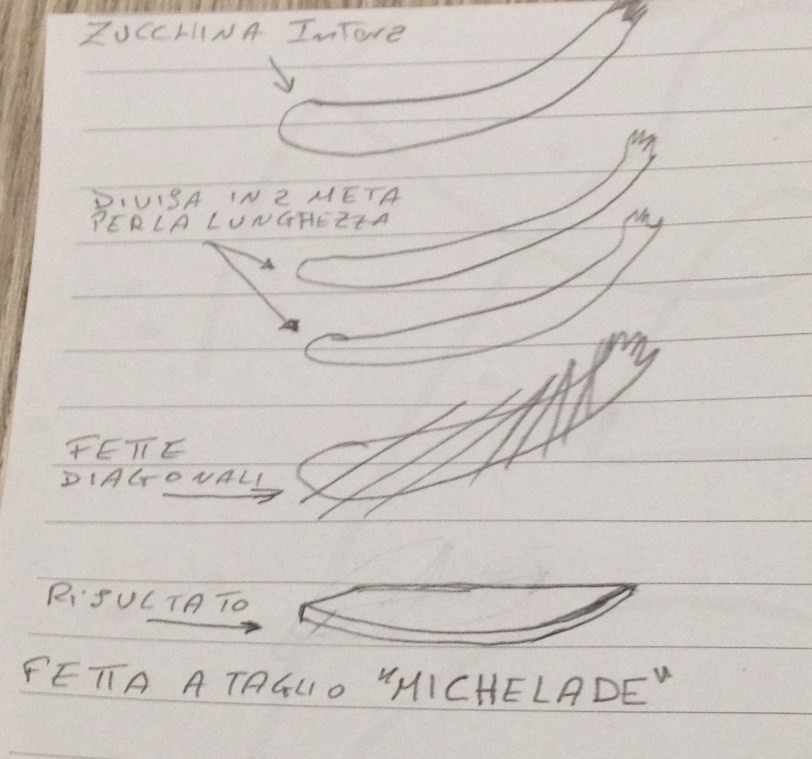 ZUCCHINA IntERA
DIVISA IN 2 META
PER LA LUNGHEZZA
FETTE
DIAGONALI
RiSULTATO
FETTA A TAGLIO "MICHELADE"